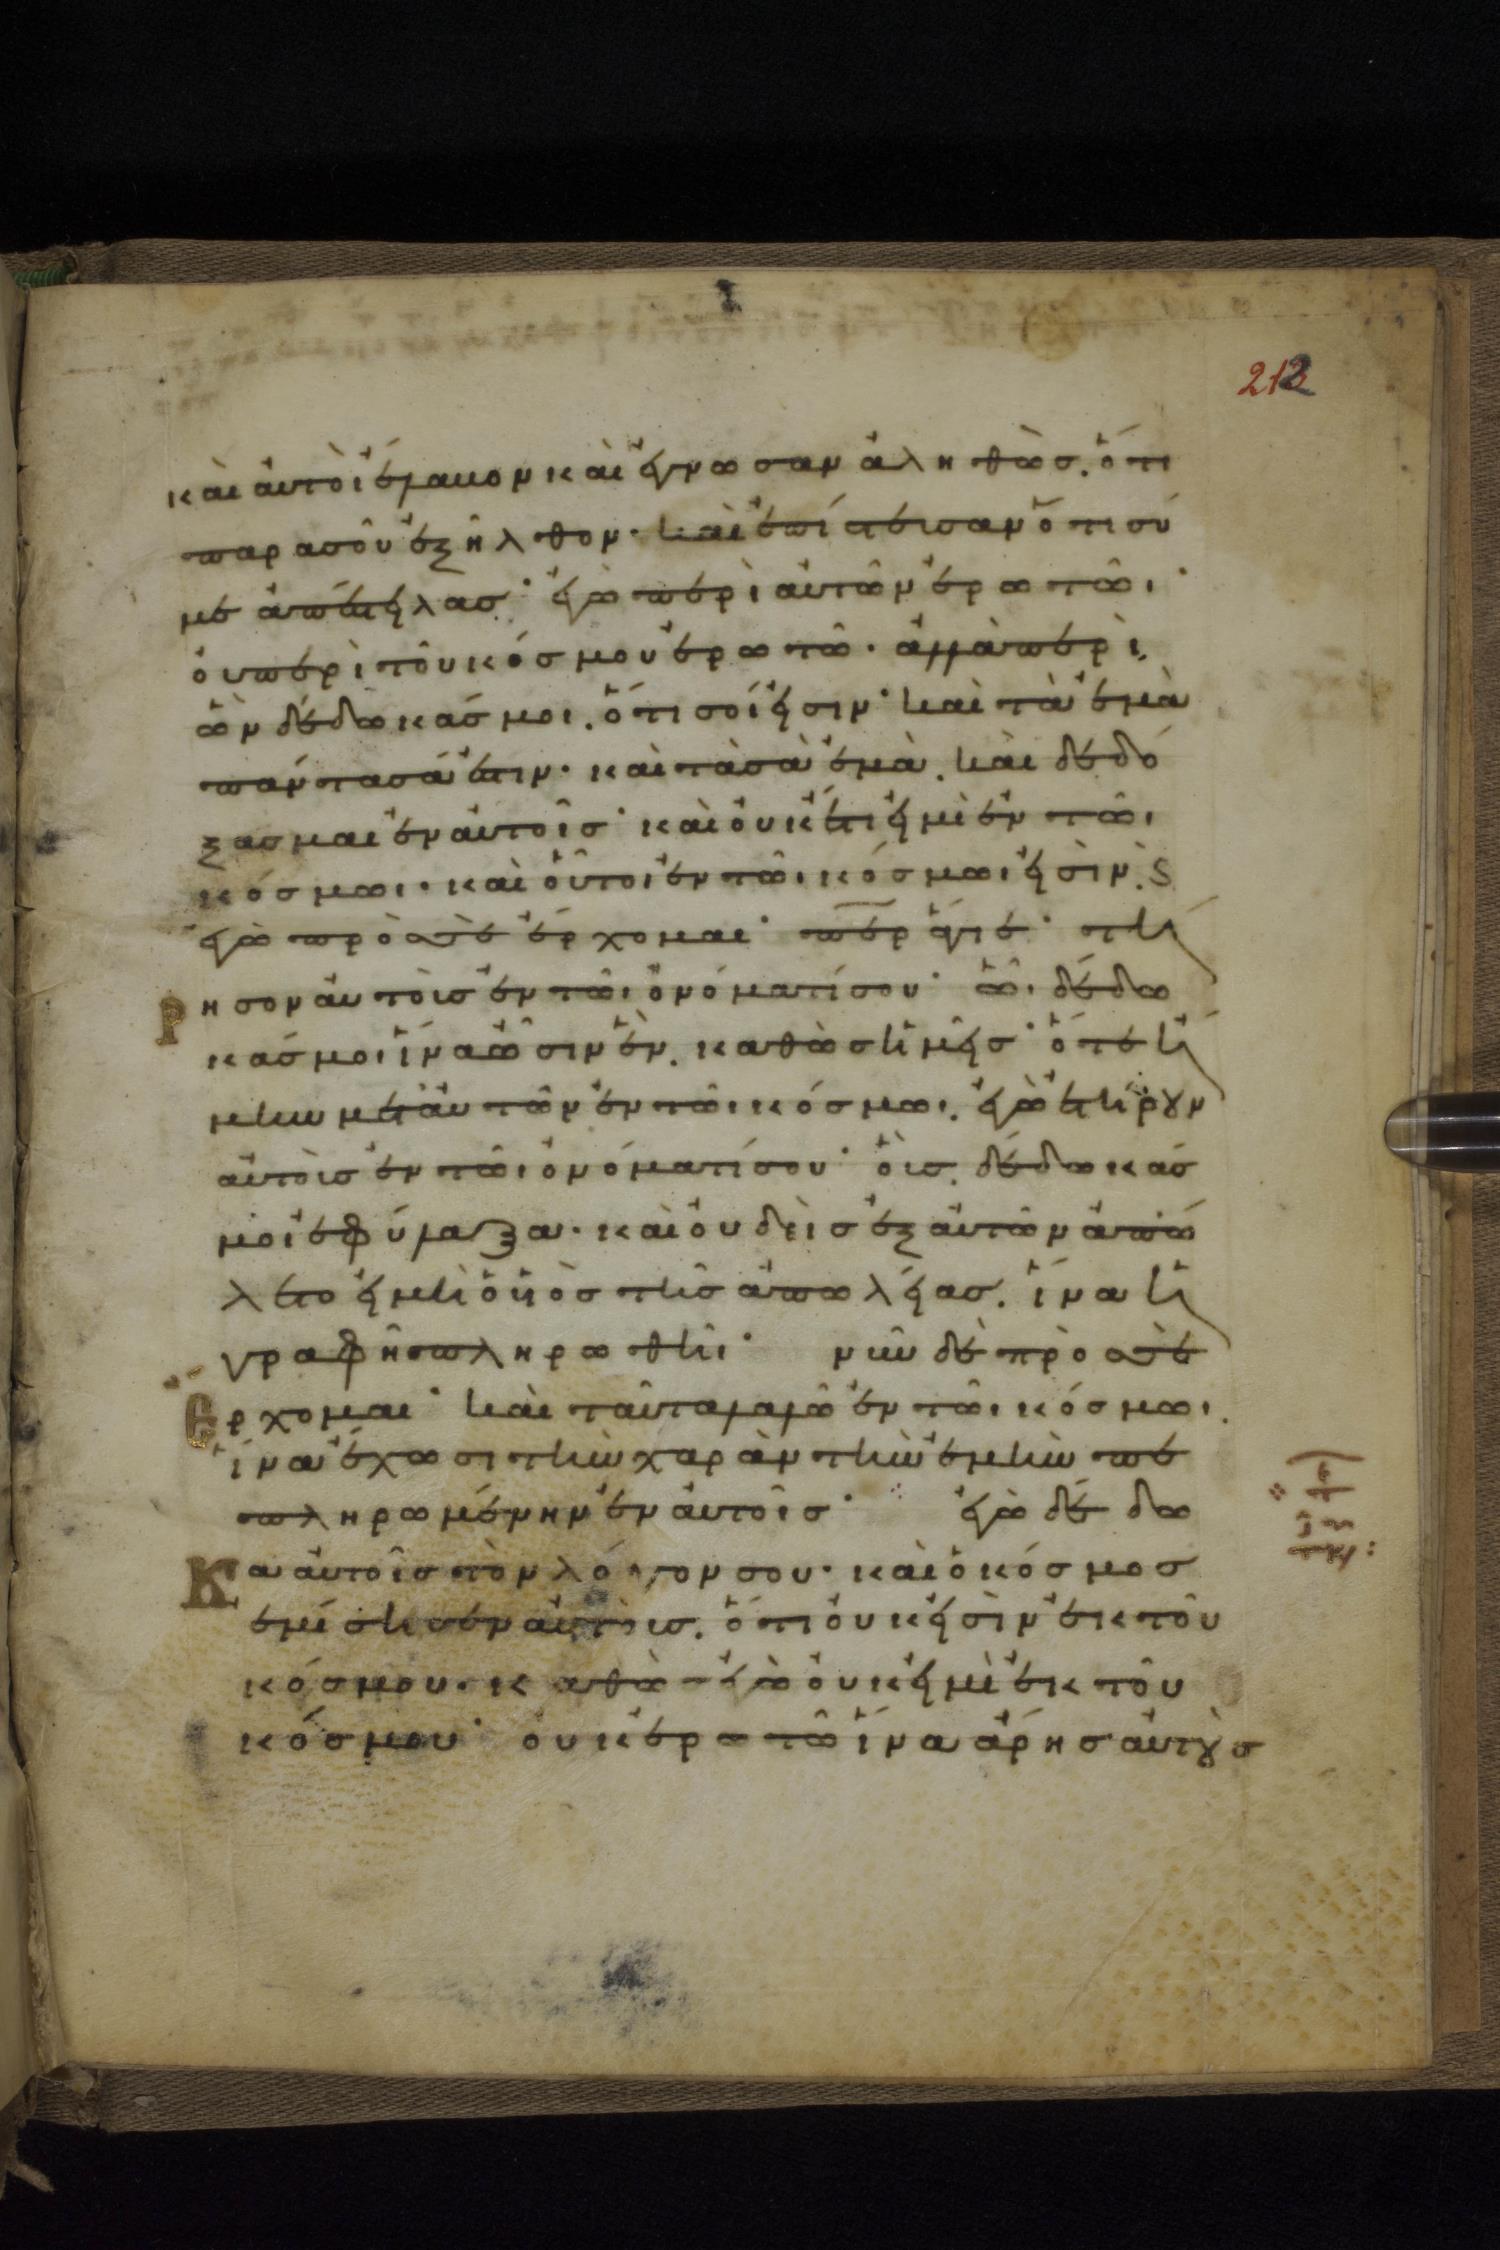 212
καὶ αὐτοὶ ἔλαβον καὶ ἔγνωσαν ἀληθῶς. ὅτι
παρὰ σοῦ ἐξῆλθον· καὶ ἐπίστευσαν ὅτι σύ
με ἀπέστειλας· ἐγὼ περὶ αὐτῶν ἐρωτῶι·
οὐ περὶ τοῦ κόσμου ἐρωτῶ· ἀλλὰ περὶ
ὧν δέδωκάς μοι. ὅτι σοί εἰσιν· καὶ τὰ ἐμὰ
πάντα σά ἐστιν· καὶ τὰ σὰ ἐμὰ. καὶ δεδό
ξασμαι ἐν αὐτοῖς· καὶ οὐκέτι εἰμὶ ἐν τῶι
κόσμωι· καὶ οὗτοι ἐν τῶι κόσμωι εἰσὶν. ϛ
ἐγὼ πρὸς σὲ ἔρχομαι· περ ἅγιε· τή
ρησον αὐτοὺς ἐν τῶι ὀνόματί σου· ὧι δέδω
κάς μοι ἵνα ὦσιν ἓν. καθὼς ἡμεῖς· ὅτε ἤ
μην μετ' αὐτῶν ἐν τῶι κόσμωι. ἐγὼ ἐτήρουν
αὐτοὺς ἐν τῶι ὀνόματί σου· οὓς δέδωκάς
μοι ἐφύλαξα· καὶ οὐδεὶς ἐξ αὐτῶν ἀπώ
λετο εἰ μὴ ὁ υἱὸς τῆς ἀπωλείας. ἵνα ἡ
γραφὴ πληρωθῆι· νῦν δὲ πρὸς σὲ
ἔρχομαι· καὶ ταῦτα λαλῶ ἐν τῶι κόσμωι.
ἵνα ἔχωσι τὴν χαρὰν τὴν ἐμὴν πε
πληρωμένην ἐν αὐτοῖς· ἐγὼ δέδω
Κα αὐτοῖς τὸν λόγον σου· καὶ ὁ κόσμος
ἐμίσησεν αὐτοὺς. ὅτι οὐκ εἰσὶν ἐκ τοῦ
κόσμου· καθὼς ἐγὼ οὐκ εἰμὶ ἐκ τοῦ
κόσμου· οὐκ ἐρωτῶ ἵνα ἄρης αὐτοὺς